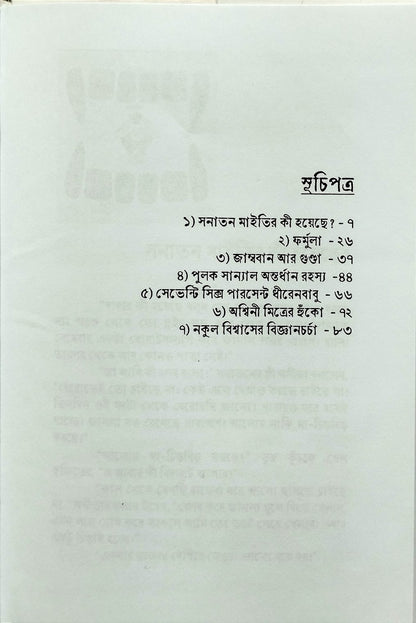 সূচিপত্র
১) সনাতন মাইতির কী হয়েছে? - ৭
২) ফর্মুলা - ২৬
৩) জাম্ববান আর গুণ্ডা - ৩৭
৪) পুলক সান্যাল অন্তর্ধান রহস্য -৪৪
৫) সেভেন্টি সিক্স পারসেন্ট ধীরেনবাবু - ৬৬
৬) অশ্বিনী মিত্রের হুঁকো - ৭২
৭) নকুল বিশ্বাসের বিজ্ঞানচর্চা - ৮৩